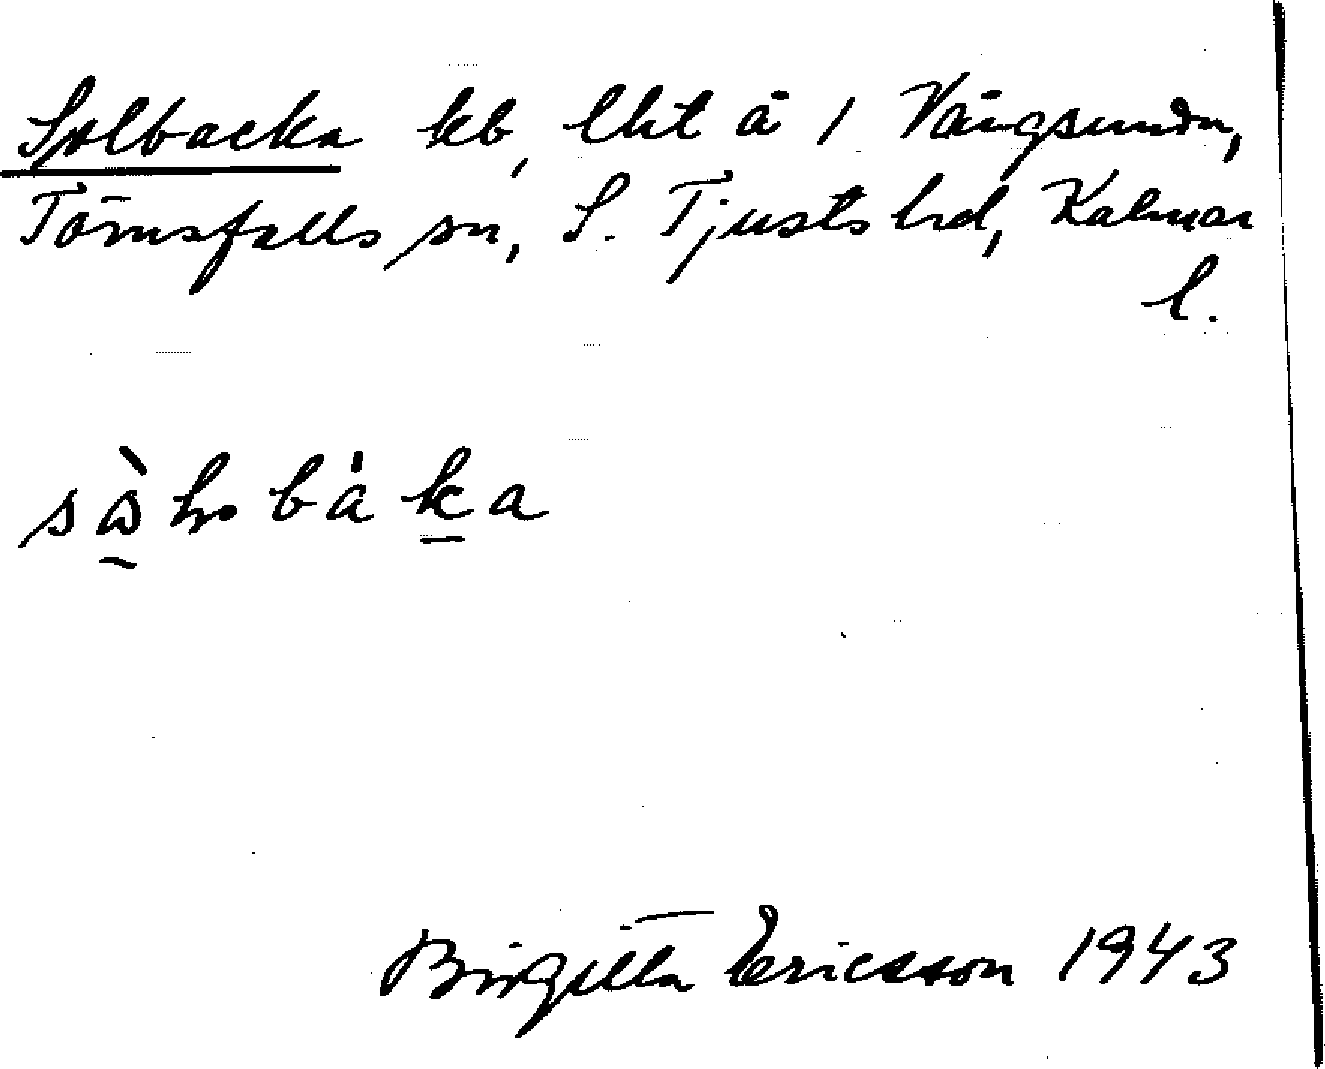 Solbacka kb, lht å 1 Vågsunda,
Törnsfalls sn, S. Tjusts hd, Kalmar
l.
Birgitta Ericsson 1943